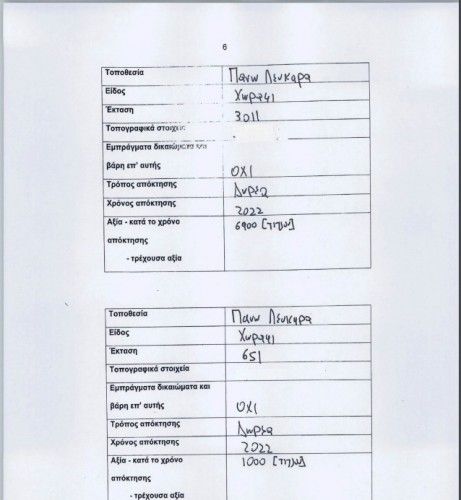 6
Τοποθεσία Πανω Λευκαρα
Είδος Χωραφι
Έκταση 3011
Τοπογραφικά στοιχεία
Εμπράγματα δικαιώματα και
βάρη επ' αυτής ΟΧΙ
Τρόπος απόκτησης Δωρεα
Χρόνος απόκτησης 2022
Αξία - κατά το χρόνο 6900
απόκτησης
- τρέχουσα αξία
Τοποθεσία Πανω Λευκαρα
Είδος Χωραφι
Έκταση 651
Τοπογραφικά στοιχεία
Εμπράγματα δικαιώματα και
βάρη επ' αυτής ΟΧΙ
Τρόπος απόκτησης Δωρεα
Χρόνος απόκτησης 2022
Αξία - κατά το χρόνο 1000
απόκτησης
- τρέχουσα αξία